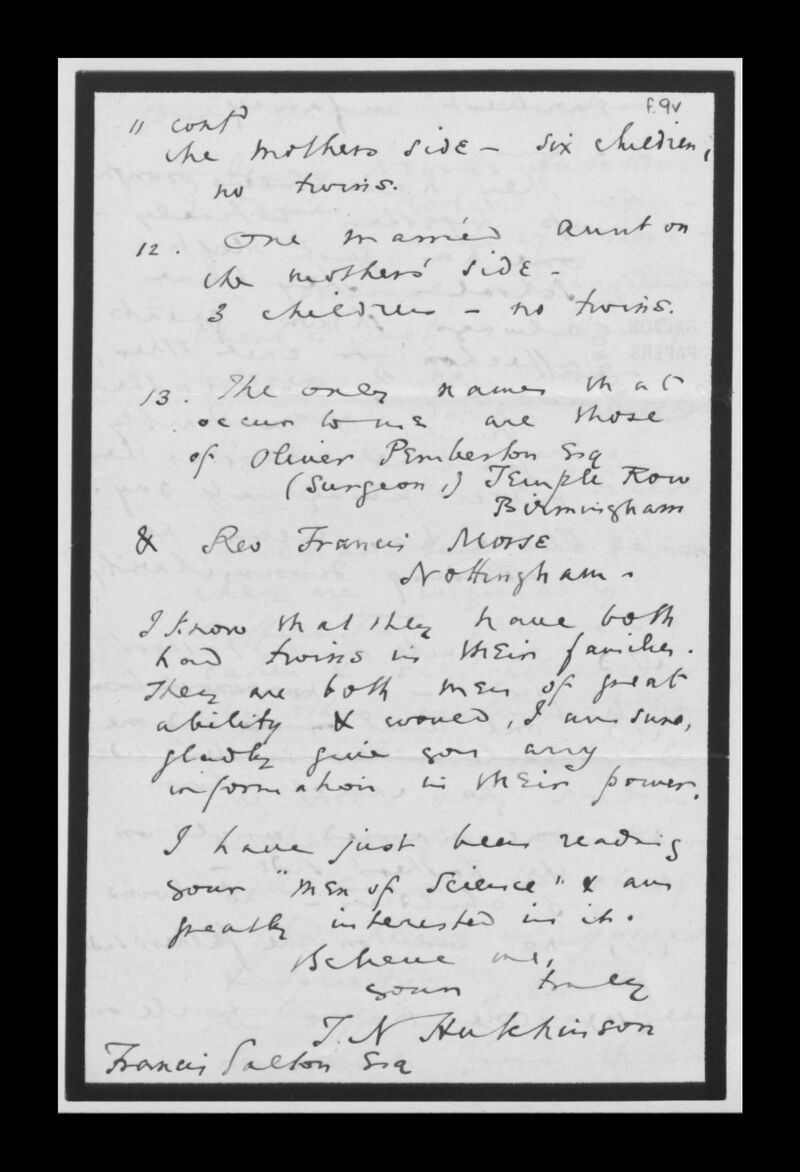 f.9v
11 contd
the mothers side – six children,
no twins.
12. One married aunt on
the mothers' side –
3 children – no twins.
13. The only names that
occur to me are those
of Oliver Pemberton Esq
(Surgeon,) Temple Row
Birmingham
& Rev Francis Morse
Nottingham.
I know that they have both
had twins in their families.
They are both men of great
ability & would, I am sure,
gladly give you any
information in their power.
I have just been reading
your "Men of Science" & am
greatly interested in it.
Believe me,
yours truly
T. N Hutchinson
Francis Galton Esq
GALTON
PAPERS